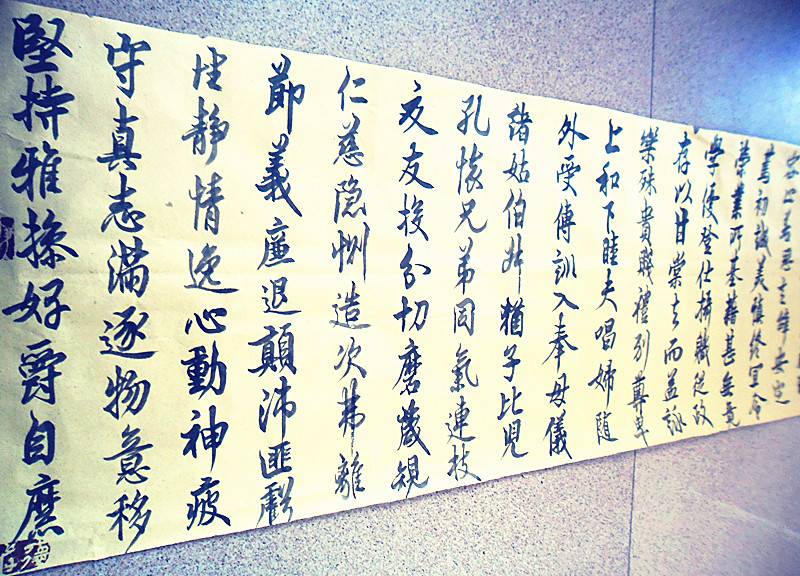 容止若思言辭安定
篤初誠美慎終宜令
榮業所基藉甚無竟
學優登仕攝職從政
存以甘棠去而益詠
樂殊貴賤禮別尊卑
上和下睦夫唱婦隨
外受傅訓入奉母儀
諸姑伯叔猶子比兒
孔懷兄弟同氣連枝
交友投分切磨箴規
仁慈隐惻造次弗離
節義廉退顛沛匪虧
性靜情逸心動神疲
守真志滿逐物意移
堅持雅操好爵自縻